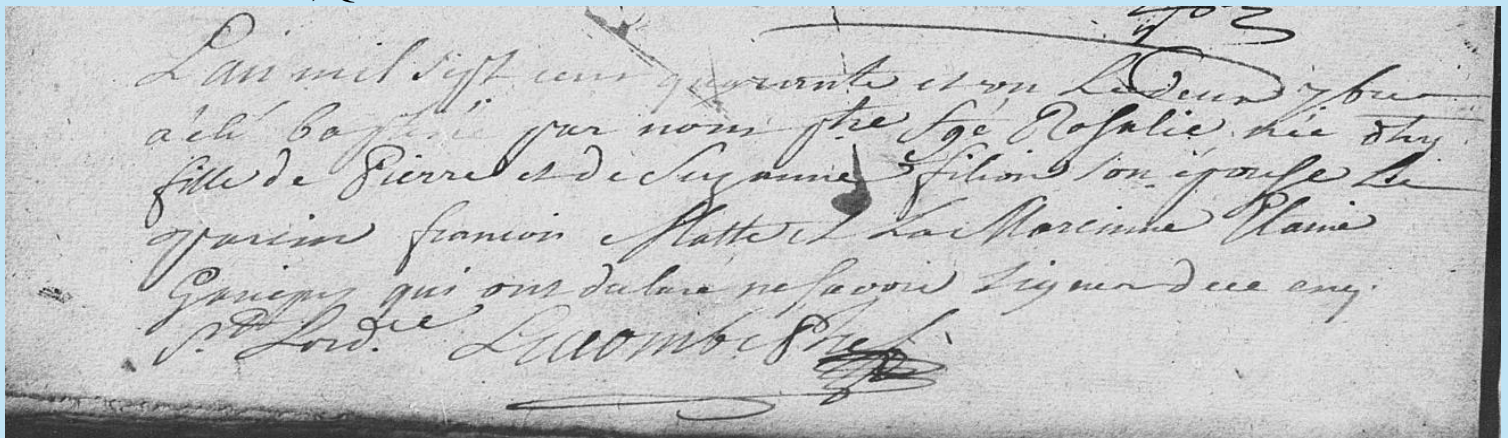 L'an mil sept cent quarante et un Le deux 7bre
a été baptisé par nous ptre Sgé Rosalie née
fille de Pierre et de Suzanne filion son épouse Le
parain francois Matte et La Mareinne
qui ont declaré ne savoir signer de ce enq.
St Lacombe Ptre